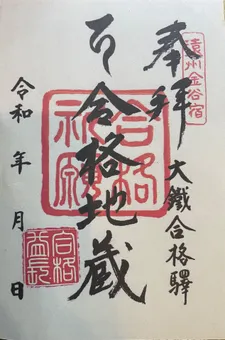 遠州金谷宿
奉拝
大鐵合格驛
合格祈願
合格地蔵
令和 年 月 日
合格